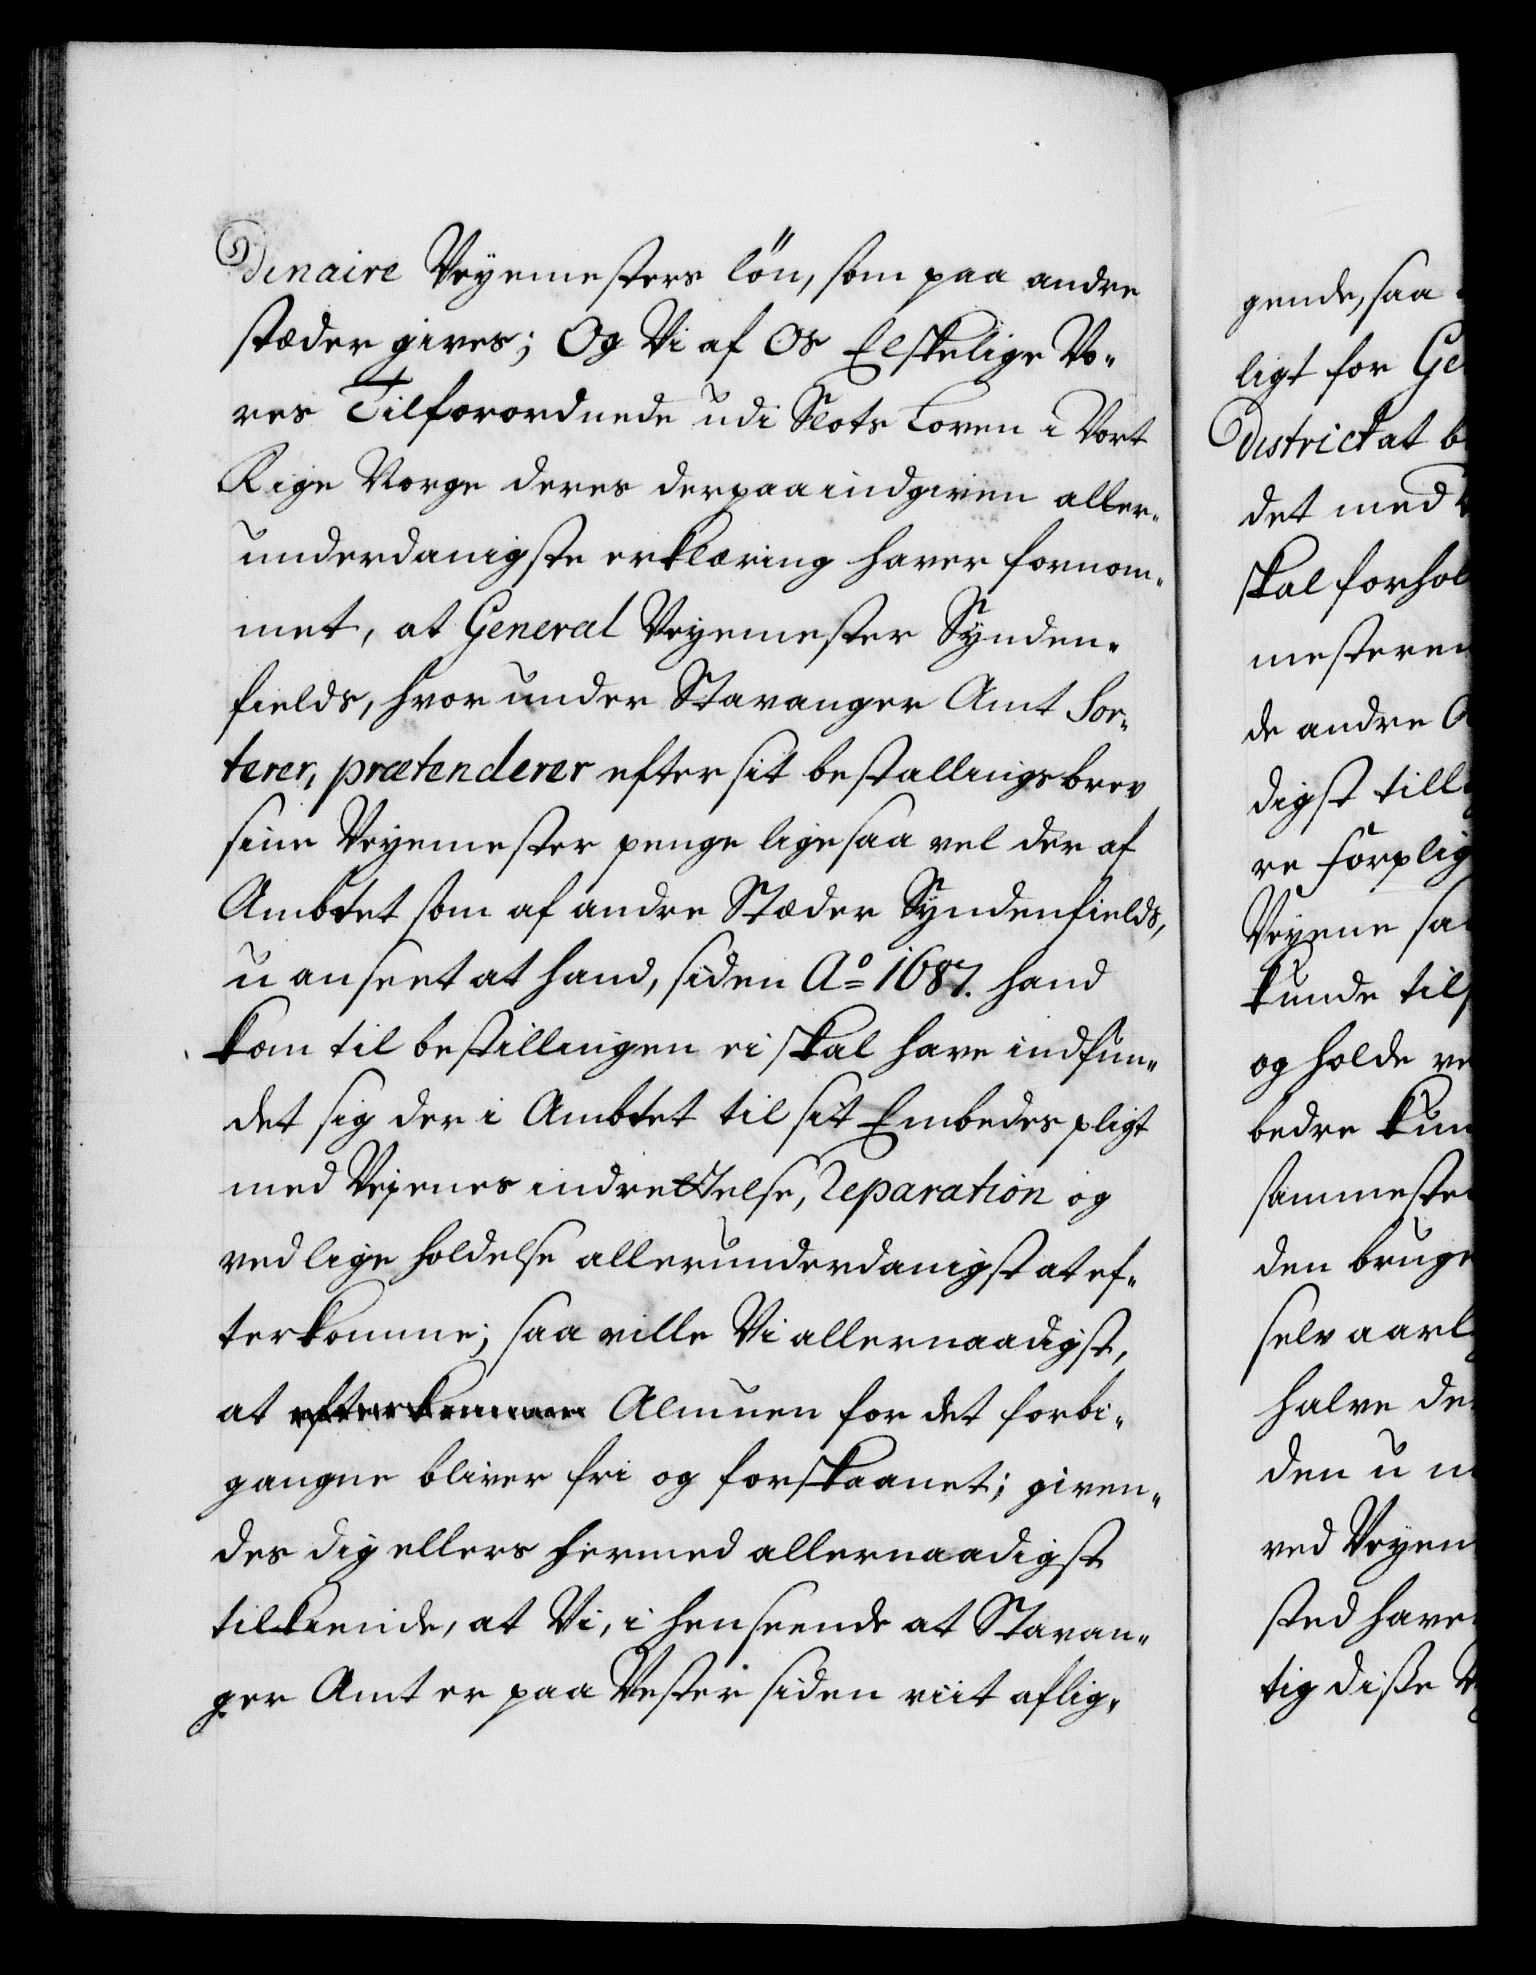 dinaire Veyemesters løn, som paa andre
stæder gives; Og Vi af Os Elskelige Vo-
res Tilforordnede udi Slots Loven i Vort
Rige Norge deres derpaa indgiven aller-
underdanigste erklæring haver fornom-
met, at General Veyemester Synden-
fields, hvor under Stavanger Amt Sor-
terer, prætenderer efter sit bestallings brev
sine Veyemester penge lige saa vel der af
Ambtet som af andre Stæder Syndenfields,
u anseet at hand, siden Ao 1687. hand
kom til bestillingen ei skal have indfun-
det sig der i Ambtet til sit Embedes pligt
med Vejenes indrettelse, Reparation og
vedlige holdelse allerunderdanigst at ef-
terkomme; saa ville Vi allernaadigst,
at efterkomme Almuen for det forbi-
gangne bliver fri og forskaanet; given-
des dig ellers hermed allernaadigst
tilkiende, at Vi, i henseende at Stavan-
ger Amt er paa Vester siden viit aflig-
gende, saa
ligt for Ge
District at b
det med
skal forhol
mesteren
de andre
digst till
re forplig
Veyene sa
kunde til
og holde ve
bedre kun
sammeste
den bruge
selv aarl
halve de
den u
ved Veyen
sted have
tig disse